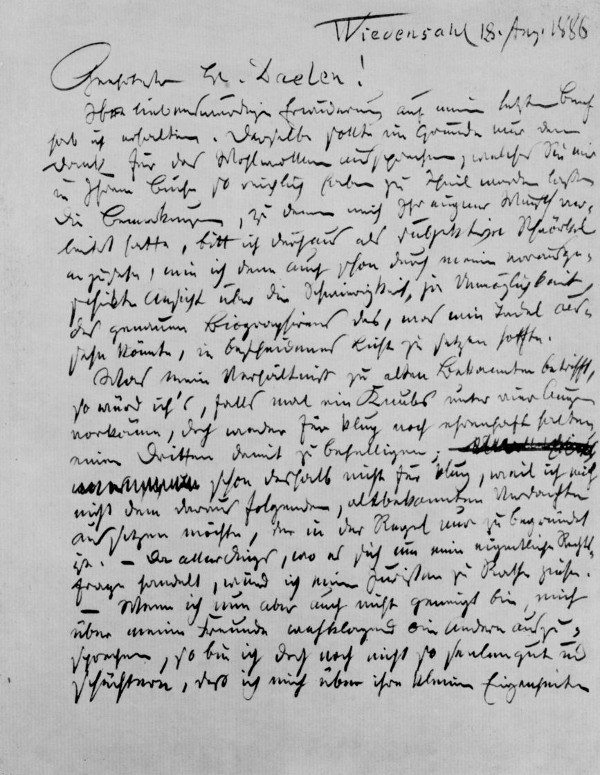 Wiedensahl 18. Aug. 1886
Geehrtester Hr. Daelen!
Ihre liebenswürdige Erwiderung auf mein letzten Brief
hab ich erhalten. Derselbe sollte im Grunde nur den
Dank für das Wohlwollen aussprechen, welches Sie mir
in Ihrem Buche so reichlich haben zu Theil werden lassen
Die Bemerkungen, zu denen mich Ihr eigner Wunsch ver-
leitet hatte, bitt ich durchaus als subjektive Schnörkel
anzusehn, wie ich denn auch schon durch meine vorausge-
schickte Ansicht über die Schwierigkeit, ja Unmöglichkeit,
des genauen Biographirens das, was wie Tadel aus-
sehn könnte, in bescheidenes Licht zu setzen hoffte.
Was mein Verhältniß zu alten Bekannten betrifft,
so würd ich's, falls mal ein Knubs unter vier Augen
vorkäme, doch weder für klug noch ehrenhaft halten,
einen Dritten damit zu behelligen;
schon deshalb nicht für klug, weil ich mich
nicht dem daraus folgenden, altbekannten Verdachte
aussetzen möchte, der in der Regel nur zu begründet
ist. — Da allerdings, wo es sich um eine eigentliche Rechts-
frage handelt, würd ich einen Juristen zu Rathe ziehn.
— Wenn ich nun aber auch nicht geneigt bin, mich
über meine Freunde wehklagend an andere auszu-
sprechen, so bin ich doch noch nicht so seelengut und
schüchtern, daß ich mich über ihre kleinen Eigenheiten